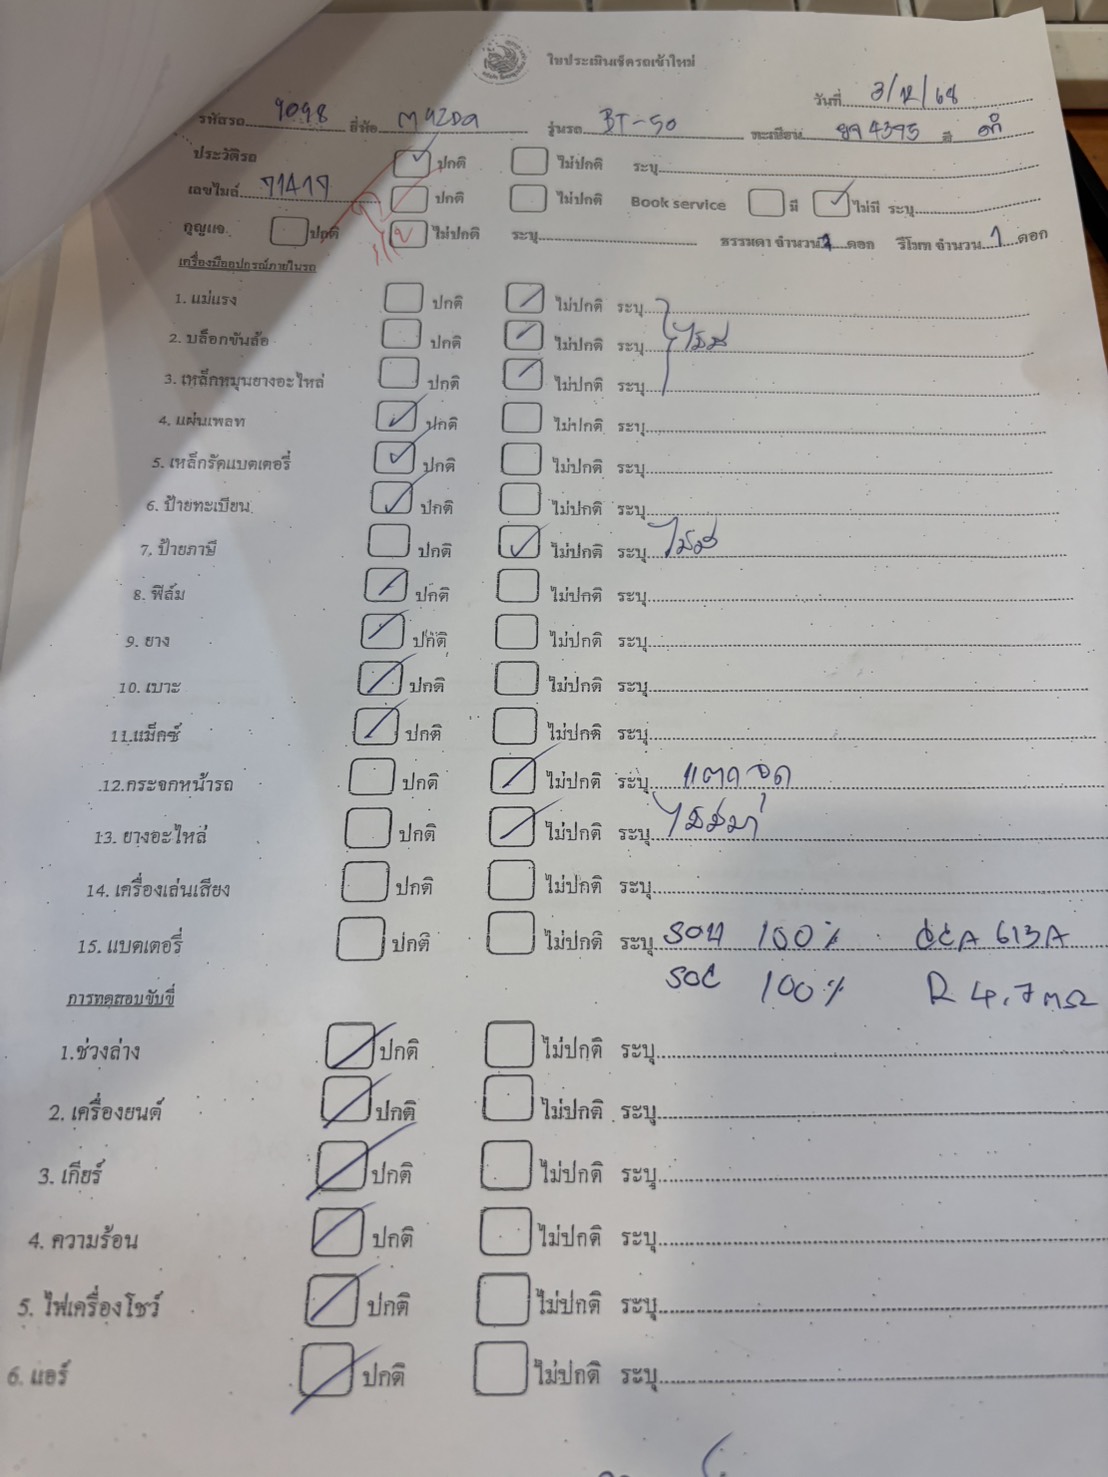 ใบประเมินเช็ครถเข้าใหม่
วันที่ 3/12/68
รหัสรถ 9098 ยี่ห้อ MAZDA รุ่นรถ BT-50 ทะเบียน 4395 สี ดำ
ประวัติรถ ปกติ ไม่ปกติ ระบุ
เลขไมล์ 71417 ปกติ ไม่ปกติ Book service มี ไม่มี ระบุ
กุญแจ ปกติ ไม่ปกติ ระบุ ธรรมดา จำนวน ดอก รีโมท จำนวน 1 ดอก
เครื่องมืออุปกรณ์ภายในรถ
1. แม่แรง ปกติ ไม่ปกติ ระบุ
2. บล็อกขันล้อ ปกติ ไม่ปกติ ระบุ ไม่มี
3. เหล็กหมุนยางอะไหล่ ปกติ ไม่ปกติ ระบุ
4. แผ่นเพลท ปกติ ไม่ปกติ ระบุ
5. เหล็กรัดแบตเตอรี่ ปกติ ไม่ปกติ ระบุ
6. ป้ายทะเบียน ปกติ ไม่ปกติ ระบุ
7. ป้ายภาษี ปกติ ไม่ปกติ ระบุ ไม่มี
8. ฟิล์ม ปกติ ไม่ปกติ ระบุ
9. ยาง ปกติ ไม่ปกติ ระบุ
10. เบาะ ปกติ ไม่ปกติ ระบุ
11.แม็คซ์ ปกติ ไม่ปกติ ระบุ
12.กระจกหน้ารถ ปกติ ไม่ปกติ ระบุ แตก จุด
13. ยางอะไหล่ ปกติ ไม่ปกติ ระบุ ไม่มีมา
14. เครื่องเล่นเสียง ปกติ ไม่ปกติ ระบุ
15. แบตเตอรี่ ปกติ ไม่ปกติ ระบุ SOH 100% CCA 613A
SOC 100% R 4.7mΩ
การทดสอบขับขี่
1.ช่วงล่าง ปกติ ไม่ปกติ ระบุ
2. เครื่องยนต์ ปกติ ไม่ปกติ ระบุ
3. เกียร์ ปกติ ไม่ปกติ ระบุ
4. ความร้อน ปกติ ไม่ปกติ ระบุ
5. ไฟเครื่องโชว์ ปกติ ไม่ปกติ ระบุ
6. แอร์ ปกติ ไม่ปกติ ระบุ